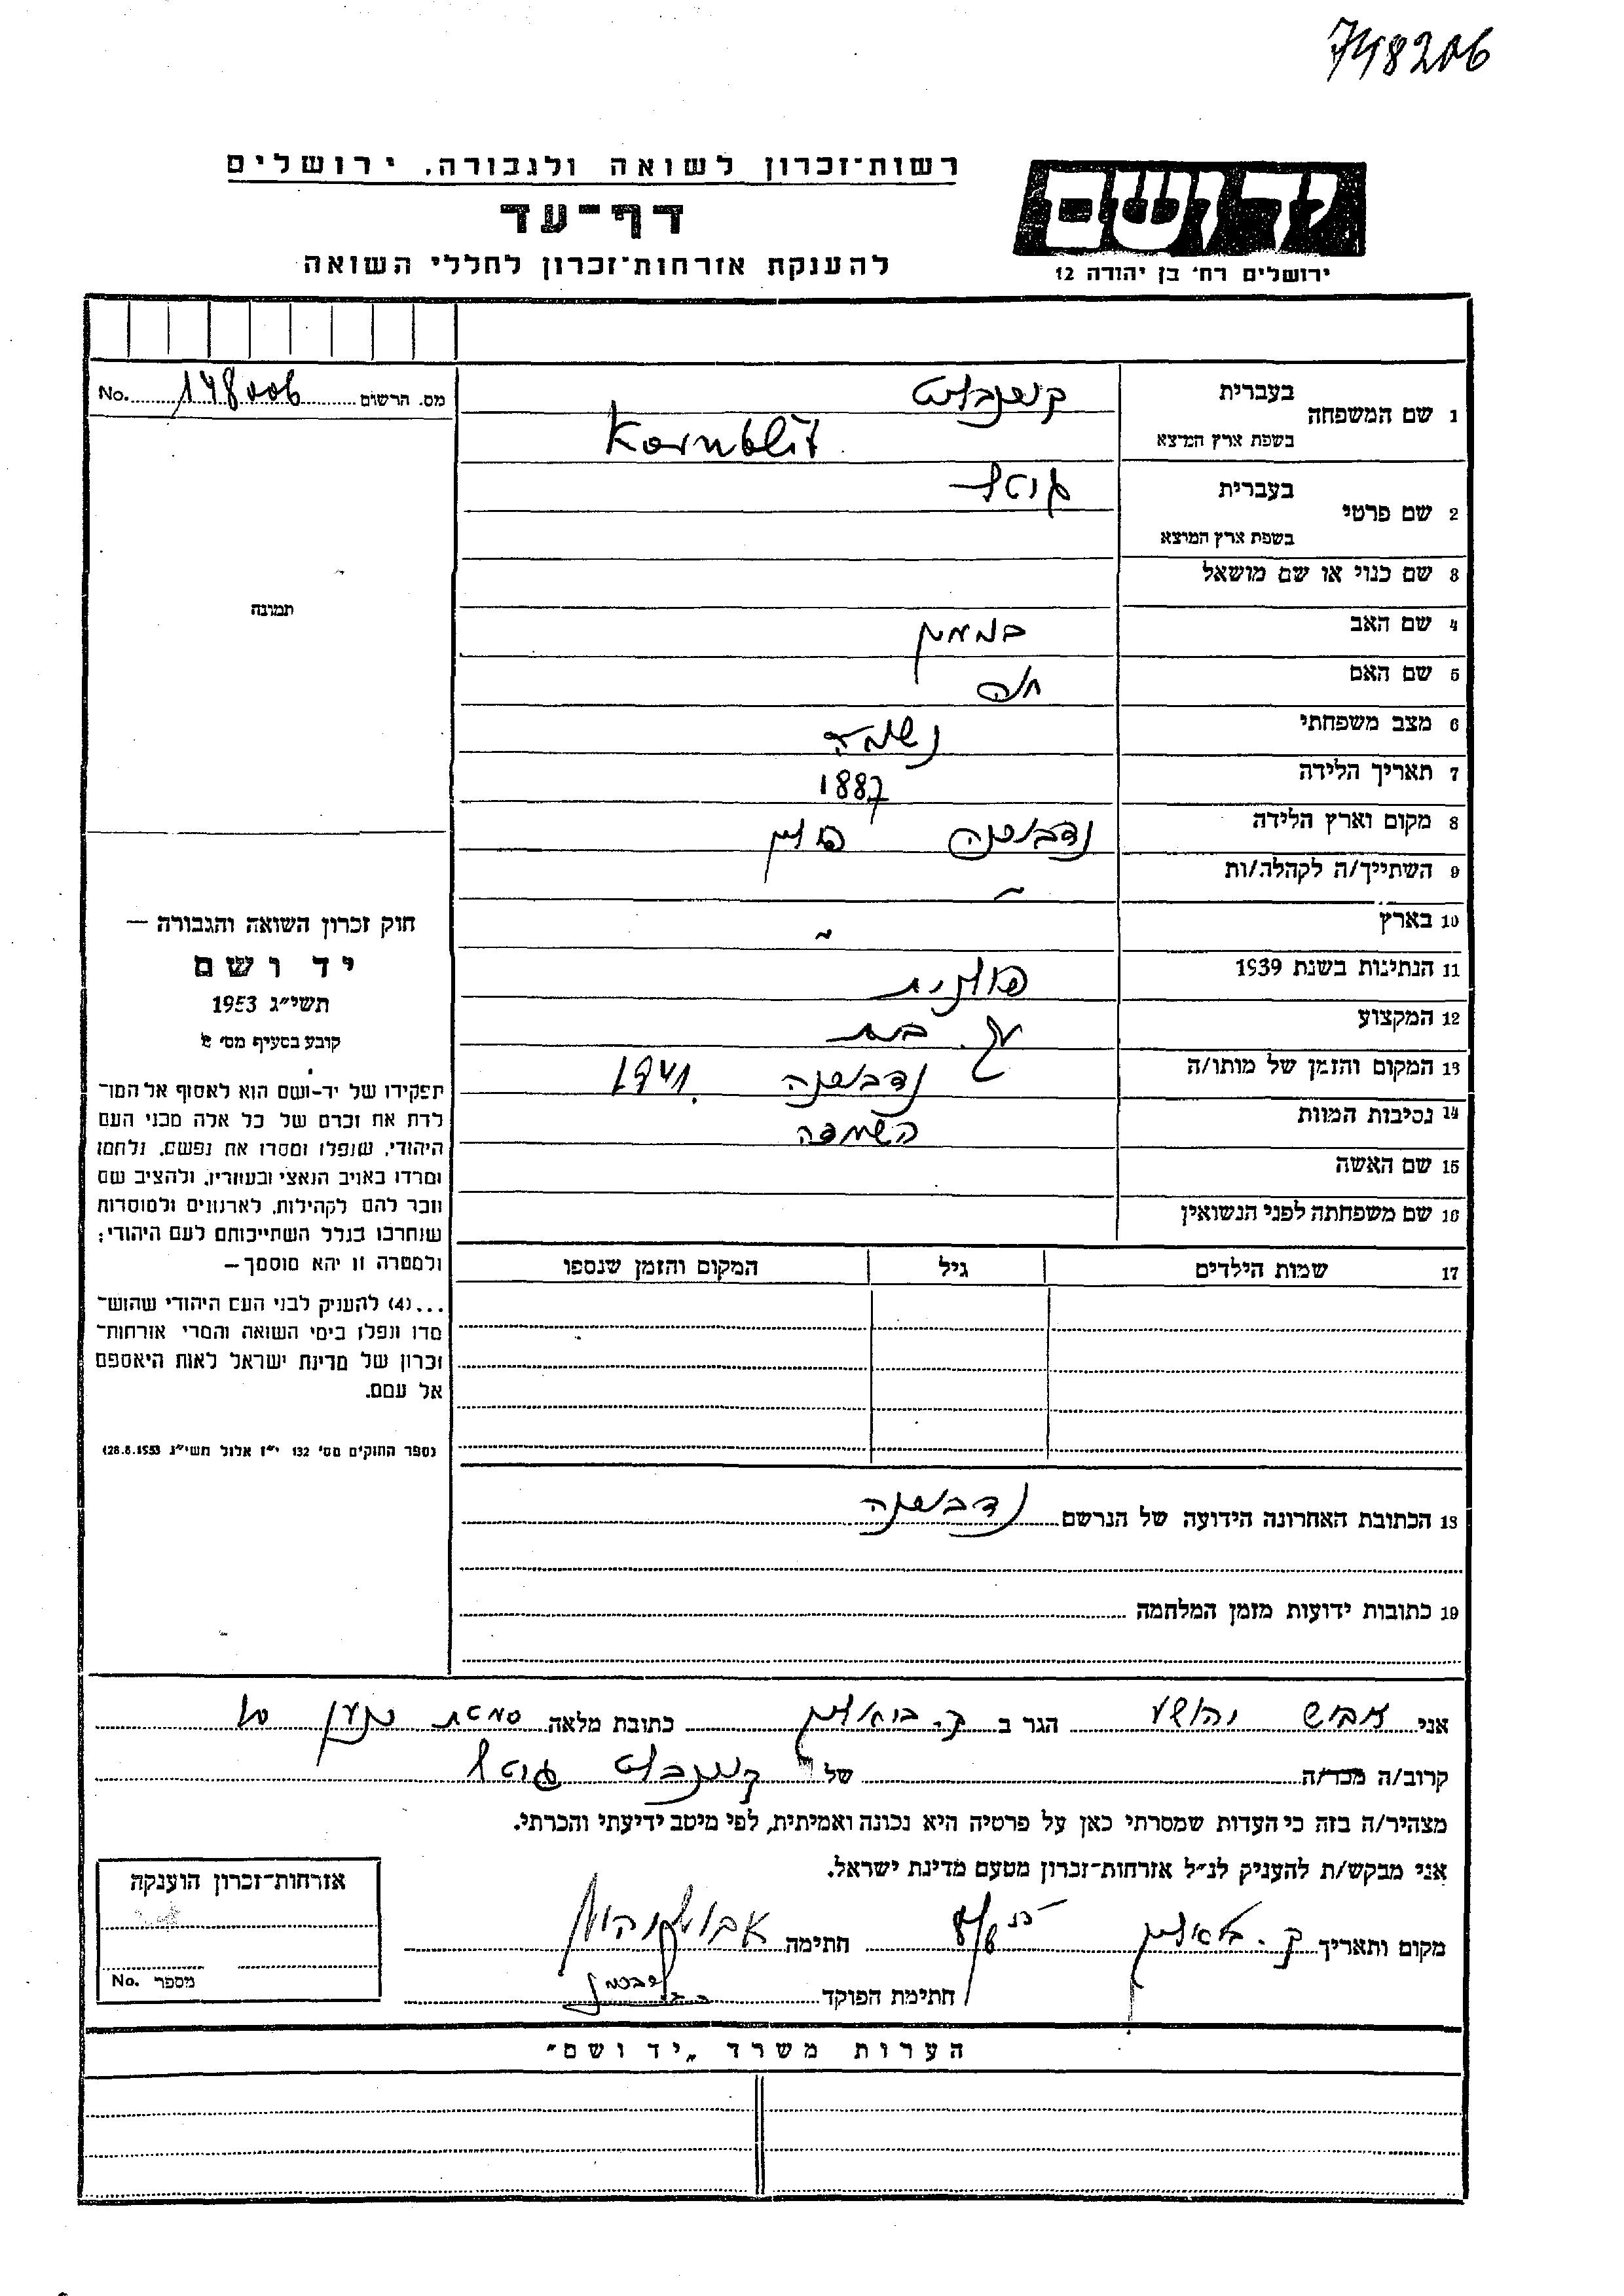 748206
רשות־זכרון לשואה ולגבורה, ירושלים
יד ושם
דף־עד
ירושלים רח' בן יהודה 12
להענקת אזרחות־זכרון לחללי השואה
מס. הרשום 148006 No.
1 שם המשפחה בעברית קורנבליט
בשפת ארץ המוצא Kornblit
2 שם פרטי בעברית
בשפת ארץ המוצא
3 שם כנוי או שם מושאל
תמונה
4 שם האב בנימין
5 שם האם חיה
6 מצב משפחתי נשואה
7 תאריך הלידה 1887
8 מקום וארץ הלידה נדבורנה פולין
9 השתייך/ה לקהלה/ות
10 בארץ
11 הנתינות בשנת 1939 פולנית
12 המקצוע עק. בית
13 המקום והזמן של מותו/ה נדבורנה 1941
14 נסיבות המוות השמדה
15 שם האשה
16 שם משפחתה לפני הנשואין
17 שמות הילדים גיל המקום והזמן שנספו
חוק זכרון השואה והגבורה —
יד ושם
תשי"ג 1953
קובע בסעיף מס' 2
תפקידו של יד-ושם הוא לאסוף אל המו־
לדת את זכרם של כל אלה מבני העם
היהודי, שנפלו ומסרו את נפשם, נלחמו
ומרדו באויב הנאצי ובעוזריו, ולהציב שם
וזכר להם לקהילות, לארגונים ולמוסדות
שנחרבו בגלל השתייכותם לעם היהודי;
ולמטרה זו יהא מוסמך —
...(4) להעניק לבני העם היהודי שהוש־
מדו ונפלו בימי השואה והמרי אזרחות־
זכרון של מדינת ישראל לאות היאספם
אל עמם.
(ספר החוקים מס' 132 י"ז אלול תשי"ג 28.8.1953)
18 הכתובת האחרונה הידועה של הנרשם נדבורנה
19 כתובות ידועות מזמן המלחמה
אני יהושע הגר ב ק. ביאליק כתובת מלאה סמטת
קרוב/ה מכר/ה של קורנבליט
מצהיר/ה בזה כי העדות שמסרתי כאן על פרטיה היא נכונה ואמיתית, לפי מיטב ידיעתי והכרתי.
אני מבקש/ת להעניק לנ"ל אזרחות־זכרון מטעם מדינת ישראל.
מקום ותאריך ק. ביאליק חתימה
חתימת הפוקד
אזרחות־זכרון הוענקה
מספר No.
הערות משרד "יד ושם"